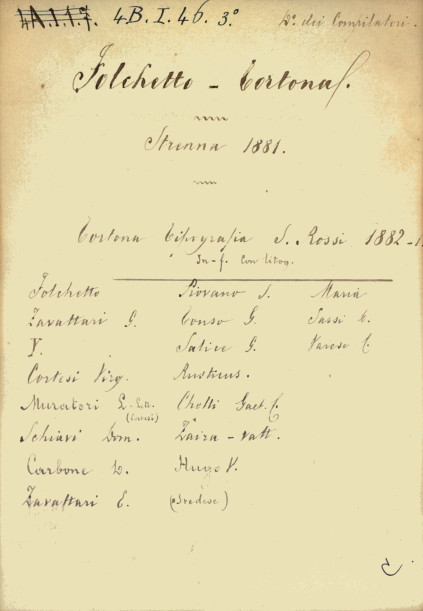 4A.1.1.7. 4.B.I.46.3° D. dei Compilatori.
Folchetto - Tortona
Strenna 1881.
Tortona Tipografia S. Rossi 1882-1
In-f. con litog.
Folchetto Piovano S. Maria
Zavattari G. Conso G. Sassi C.
Y. Salice G. Varese C.
Cortesi Virg. Rusticus.
Muratori L. Chotti Gaet. C.
Schiavi Dom. Zaira - vatt.
Carbone D. Hugo V.
Zavattari E. (Svedese)